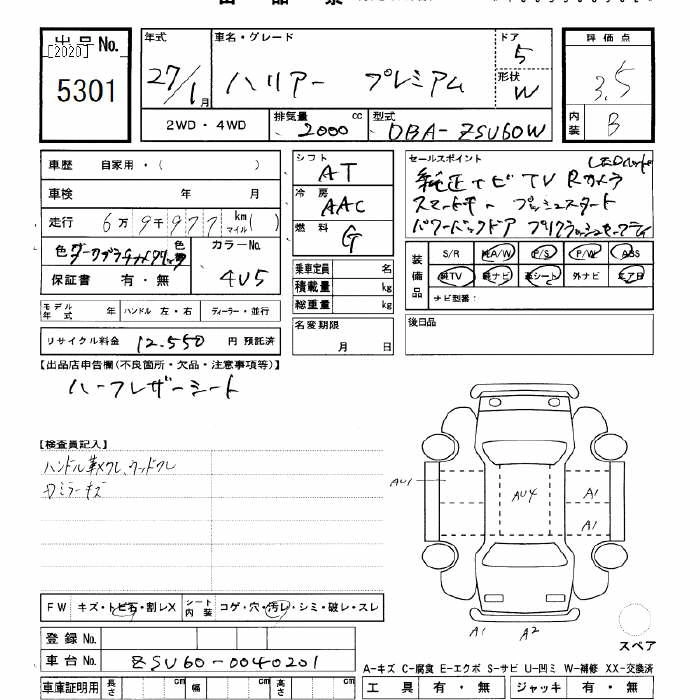 出品票
出品No.
[2020]
5301
年式
27/1月
車名・グレード
ハリアー プレミアム
ドア
5
形状
W
評価点
3.5
内装
B
2WD・4WD
排気量
2000 cc
型式
DBA-ZSU60W
車歴 自家用・( )
車検 年 月
走行 6万9千977 km マイル( )
色
色替
カラーNo.
4U5
保証書 有・無
シフト
AT
冷房
AAC
燃料
G
乗車定員 名
積載量 kg
総重量 kg
セールスポイント
LEDヘッド
純正ナビ TV Rカメラ
スマートキー プッシュスタート
パワーバックドア プリクラッシュセーフティ
装備品
S/R 純A/W P/S P/W ABS
純TV 純ナビ 革シート 外ナビ エアB
ナビ型番:
モデル年式 年 ハンドル 左・右 ディーラー・並行
名変期限
月 日
後日品
リサイクル料金 12.550 円 預託済
【出品店申告欄(不良箇所・欠品・注意事項等)】
ハーフレザーシート
【検査員記入】
ハンドル革スレ、ウッドスレ
Rミラーキズ
AU1
AU4
A1
A1
A1
A2
スペア
FW キズ・トビ石・割レX シート内装 コゲ・穴・汚レ・シミ・破レ・スレ
登録No.
車台No. ZSU60-0040201
A-キズ C-腐食 E-エクボ S-サビ U-凹ミ W-補修 XX-交換済
車庫証明用 長さ cm 幅 cm 高さ cm
工具 有・無 ジャッキ 有・無